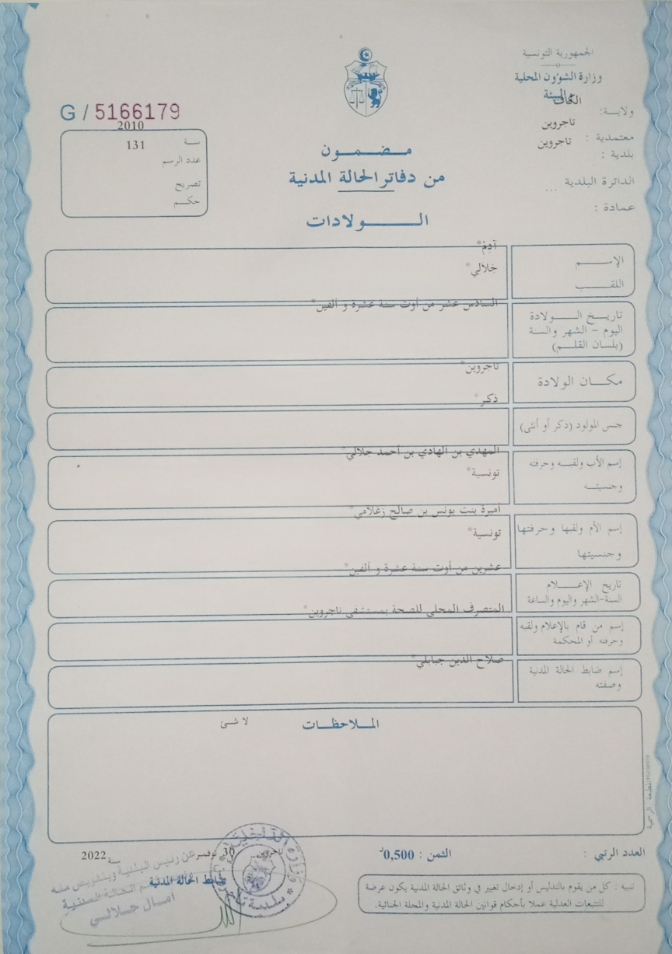 الجمهورية التونسية
وزارة الشؤون المحلية
والبيئة
ولاية: الكاف
معتمدية : تاجروين
بلدية : تاجروين
الدائرة البلدية : ...
عمادة :
G / 5166179
سنة 2010
عدد الرسم 131
تصريح
حكم
مضمون
من دفاتر الحالة المدنية
الولادات
الإسم
آدم*
اللقب
جلالي*
تاريخ الولادة
اليوم - الشهر والسنة
(بلسان القلم)
السادس عشر من أوت سنة عشرة و ألفين*
مكان الولادة
تاجروين*
جنس المولود (ذكر أو أنثى)
ذكر*
إسم الأب ولقبه وحرفته
وجنسيته
المهدي بن الهادي بن أحمد جلالي*
تونسية*
إسم الأم ولقبها وحرفتها
وجنسيتها
أميرة بنت يونس بن صالح زغلامي*
تونسية*
تاريخ الإعلام
السنة-الشهر واليوم والساعة
عشرين من أوت سنة عشرة و ألفين*
إسم من قام بالإعلام ولقبه
وحرفته أو المحكمة
المتصرف المحلي للصحة بمستشفى تاجروين*
إسم ضابط الحالة المدنية
وصفته
صلاح الدين جبابلي*
الملاحظات
لا شئ
المطبعة الرسمية
العدد الرتبي :
الثمن : 0,500د
30 نوفمبر سنة 2022
ضابط الحالة المدنية
عن رئيس البلدية وبتفويض منه
ضابط الحالة المدنية
أمال جلالي
تنبيه : كل من يقوم بالتدليس أو إدخال تغيير في وثائق الحالة المدنية يكون عرضة
للتتبعات العدلية عملا بأحكام قوانين الحالة المدنية والمجلة الجنائية.